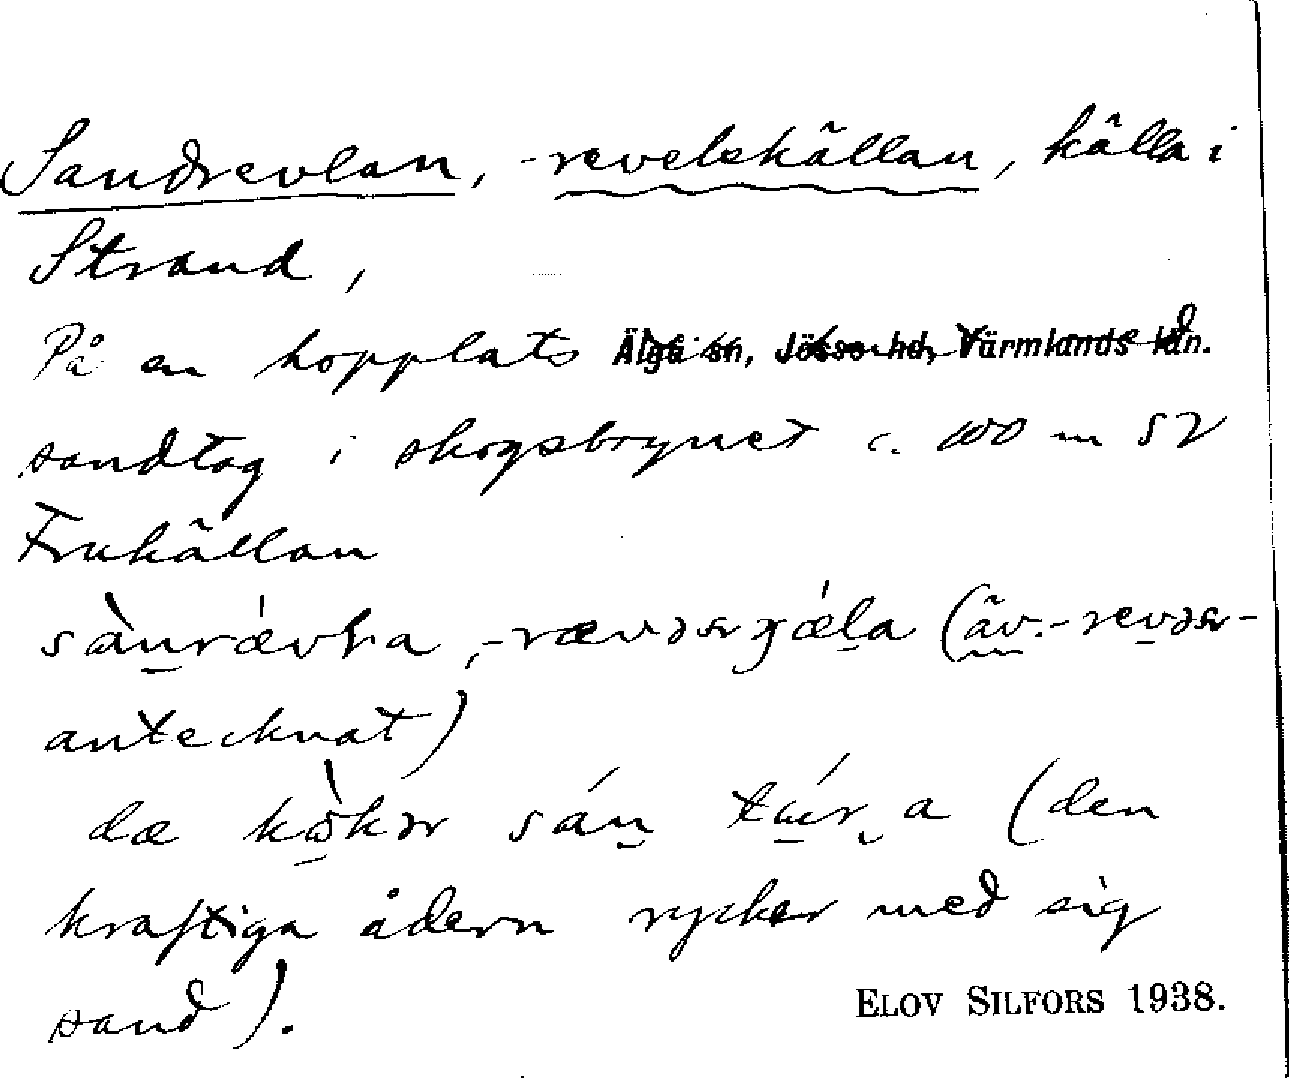 Sandrevlan, -revelskällan, källa i
Strand,
På en hopplats Älgå sn, Jösse hd, Värmlands län.
sandtag i skogsbrynet c. 100 m SV
Frukällan
antecknat)
dæ sán (den
kraftiga ådern rycker med sig
sand).
ELOV SILFORS 1938.